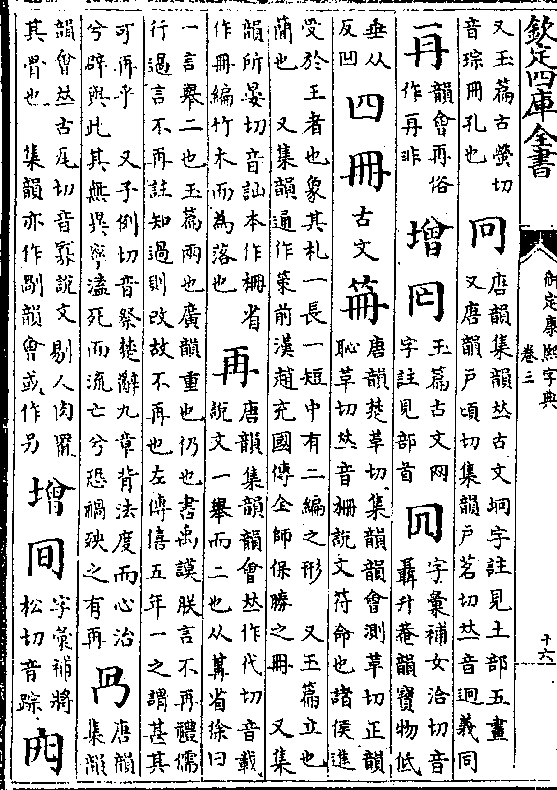 欽定四庫全書
御定康熙字典
卷三
十六
又玉篇古螢切
音琮冊孔也
冋
唐韻集韻𠀤古文坰字註見土部五畫
又唐韻戶頃切集韻戶茗切𠀤音迥義同
𠕅
韻會再俗
作𠕅非
增
玉篇古文网
字註見部首
字彙補女洽切音
聶升菴韻寶物低
垂从
反凹
四
冊
古文
𠕋
唐韻楚革切集韻韻會測革切正韻
恥革切𠀤音柵說文符命也諸侯進
受於王者也象其札一長一短中有二編之形 又玉篇立也
簡也 又集韻通作策前漢趙充國傳全師保勝之冊 又集
韻所晏切音訕本作柵省
作冊編竹木而為落也
再
唐韻集韻韻會𠀤作代切音載
說文一舉而二也从冓省徐曰
一言舉二也玉篇兩也廣韻重也仍也書禹謨朕言不再禮儒
行過言不再註知過則改故不再也左傳僖五年一之謂甚其
可再乎 又子例切音祭楚辭九章背法度而心治
兮辟與此其無異寧溘死而流亡兮恐禍殃之有再
冎
唐韻
集韻
韻會𠀤古瓦切音寡說文剔人肉置
其骨也 集韻亦作剮韻會或作另
增
字彙補將
松切音蹤